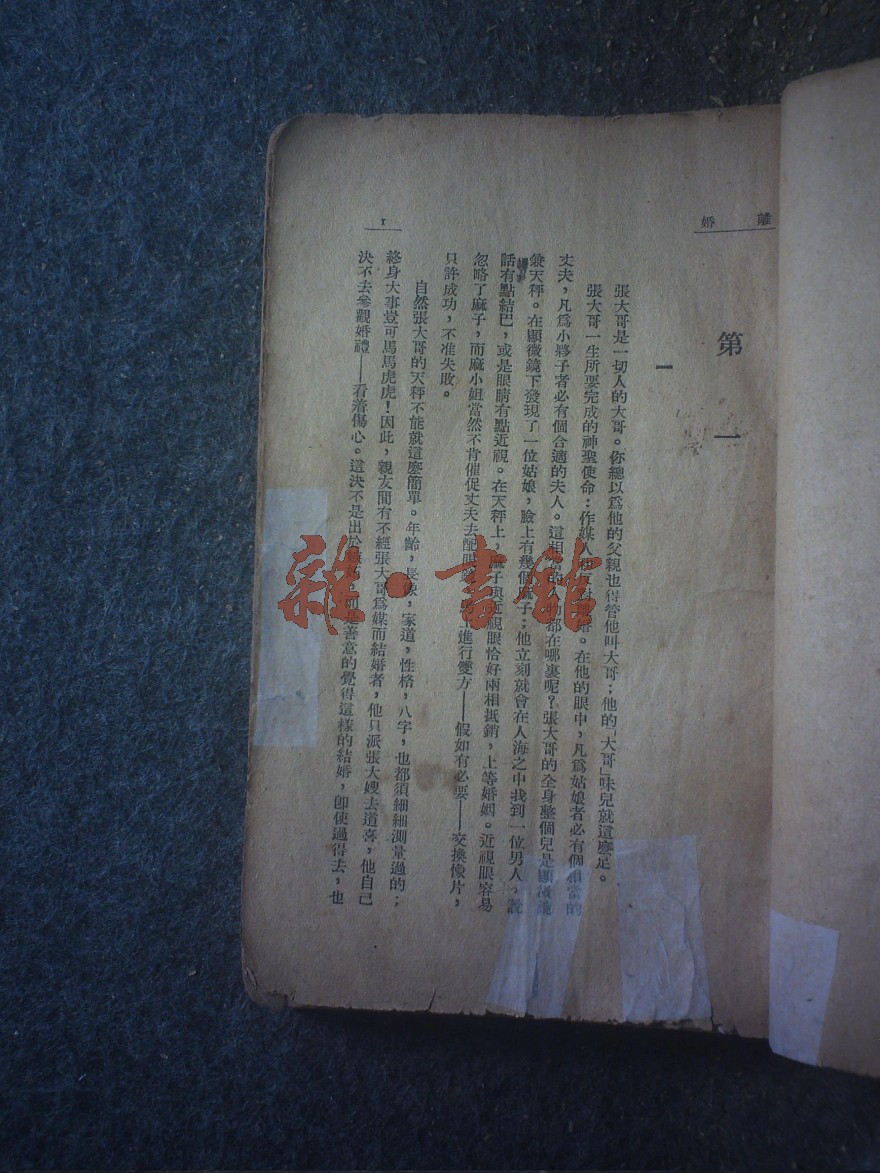 離婚
第一
一
張大哥是一切人的大哥。你總以爲他的父親也得管他叫大哥;他的「大哥」味兒就這麼足。
張大哥一生所要完成的神聖使命:作媒人和反對離婚。在他的眼中,凡爲姑娘者必有個相當的
丈夫,凡爲小夥子者必有個合適的夫人。這相當的人物都在哪裏呢?張大哥的全身整個兒是顯微鏡
兼天秤。在顯微鏡下發現了一位姑娘,臉上有幾個麻子;他立刻就會在人海之中找到一位男人,說
話有點結巴,或是眼睛有點近視。在天秤上,麻子與近視眼恰好兩相抵銷,上等婚姻。近視眼容易
忽略了麻子,而麻小姐當然不肯催促丈夫去配眼上進行雙方——假如有必要——交換像片,
只許成功,不准失敗。
自然張大哥的天秤不能就這麼簡單。年齡,長像,家道,性格,八字,也都須細細測量過的;
終身大事豈可馬馬虎虎!因此,親友間有不經張大哥爲媒而結婚者,他只派張大嫂去道喜,他自己
決不去參觀婚禮——看着傷心。這決不是出於而是善意的覺得這樣的結婚,卽使過得去,也
1
雜·書館